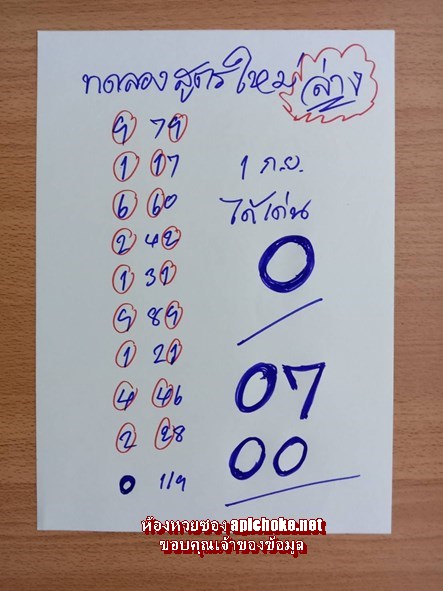 ทดลองสูตรใหม่ ล่าง
9 79
1 17
1 ก.ย.
6 60
ได้เด่น
2 42
0
1 31
9 89
1 21
07
4 46
2 28
00
0 1/9
ห้องหวยซอง apichoke.net
ขอบคุณเจ้าของข้อมูล